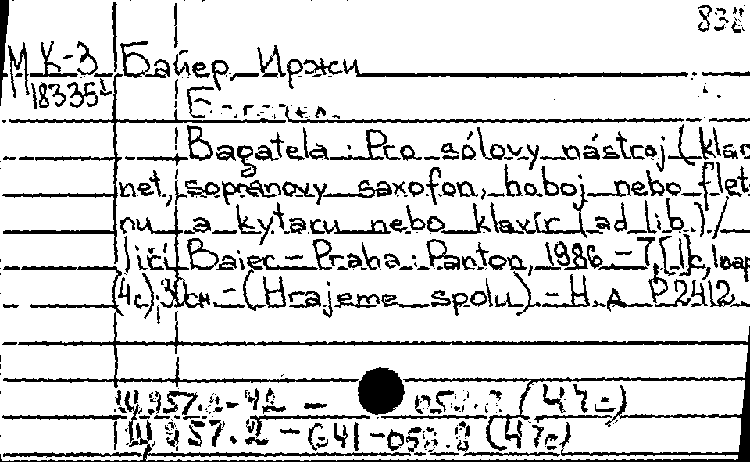 838
МК-3 Байер, Иржи
183351
Bagatela : Pro sólovy nástroj (klari
net, sopránovy saxofon, hoboj nebo flet
nu a kytaru nebo klavír (ad lib.) /
Jiří Bajer – Praha : Panton, 1986 – 7,[1]с, 1 вар
(4с); 30см – (Hrajeme spolu) – Н. д. P 2412
Щ957.2-42 –
Щ957.2 – 641-058.8 (47с)